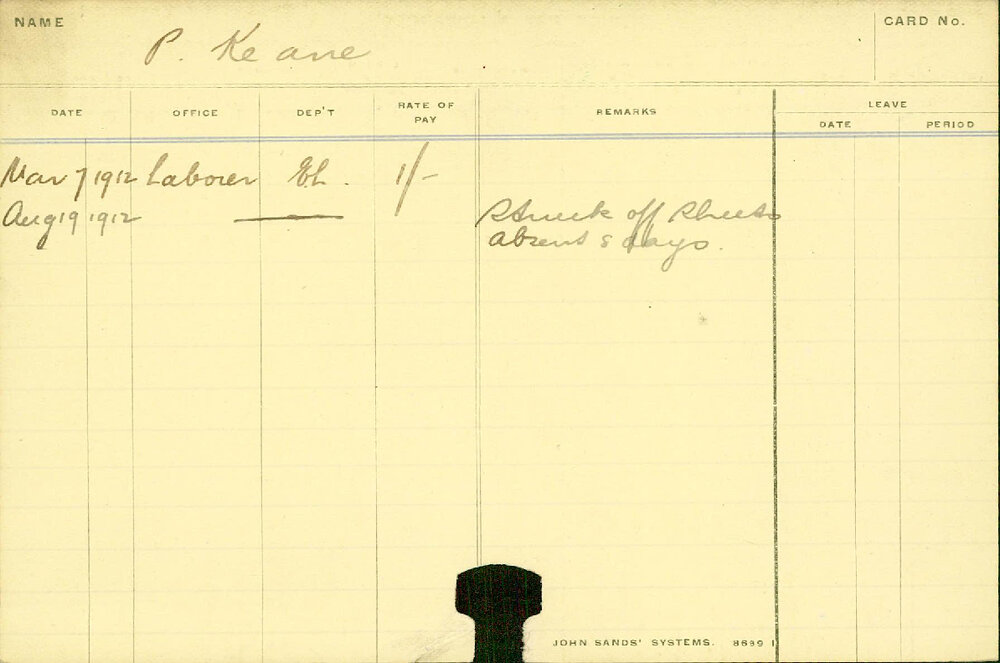 NAME P. Keane CARD No.
DATE OFFICE DEP'T RATE OF PAY REMARKS LEAVE
DATE PERIOD
Mar 7 1912 Laborer EL. 1/-
Aug 19 1912 Struck off Sheets
absent 5 days.
JOHN SANDS' SYSTEMS. 8689 1